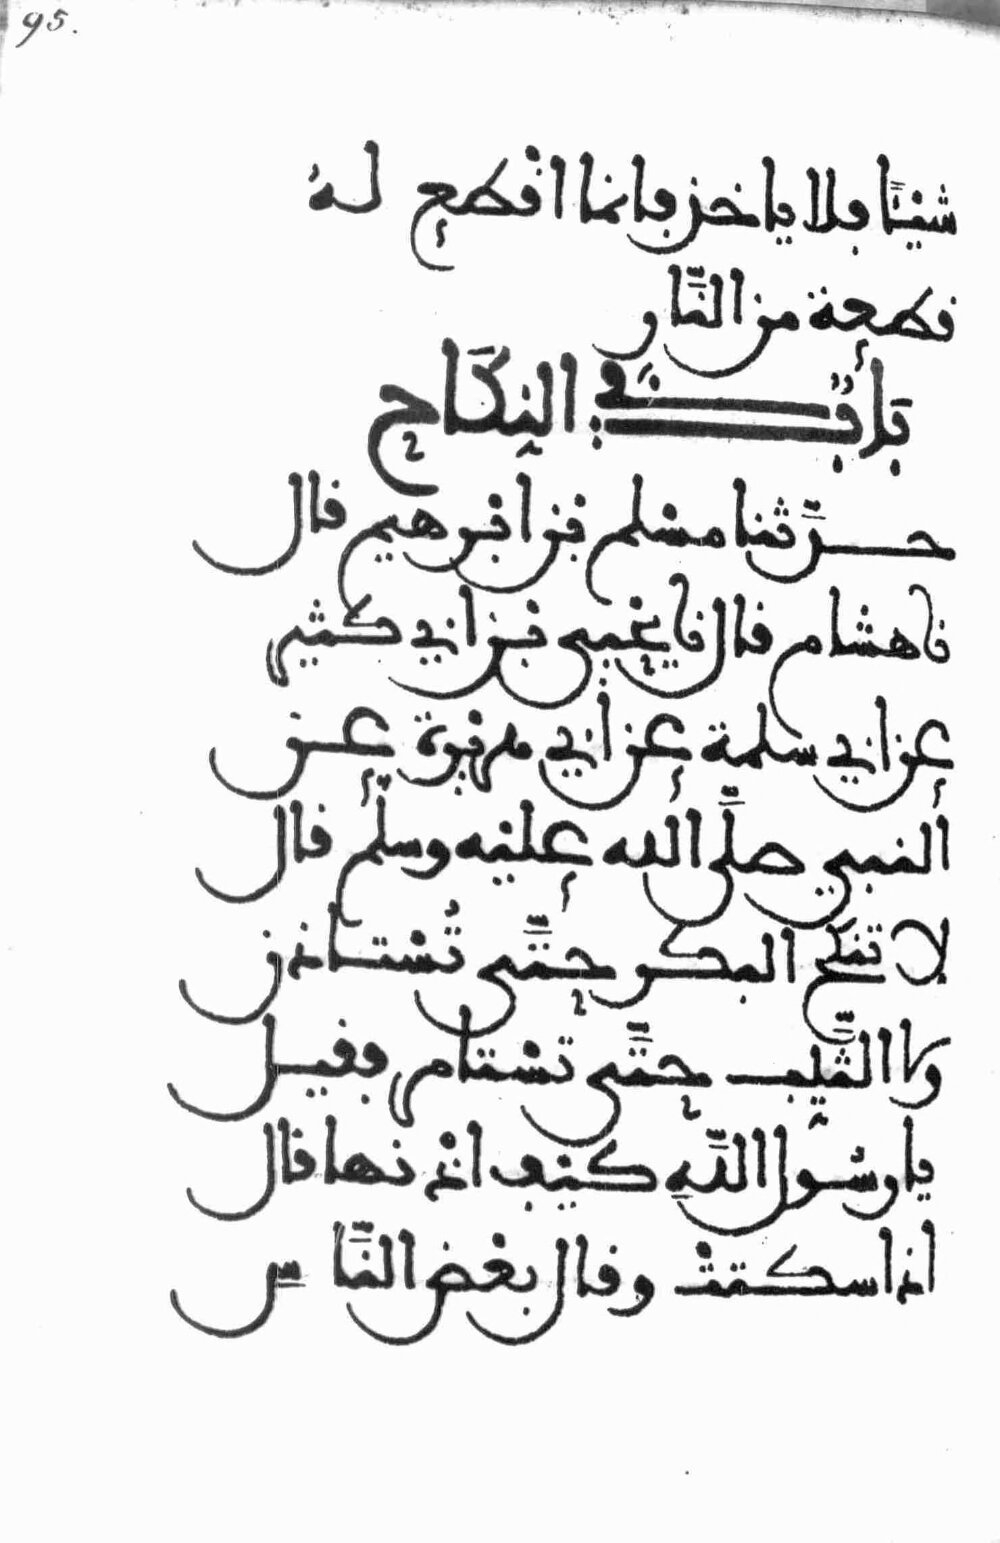 95.
شيئا فلا ياخذ فانما اقطع له
قطعة من النار
باب في النكاح
حدثنا مسلم بن ابرهيم قال
نا هشام قال نا يحيى بن ابي كثير
عن ابي سلمة عن ابي هريرة عن
النبي صلى الله عليه وسلم قال
لا تنكح البكر حتى تستاذن
ولا الثيب حتى تستامر فقيل
يا رسول الله كيف اذنها قال
اذا سكتت وقال بعض الناس